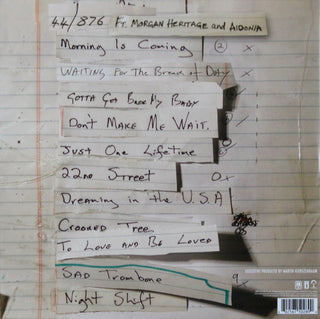 44/876 Ft. MORGAN HERITAGE and AIDONIA
Morning Is Coming 2 x
WAITING For THE Break of DAY x
GOTTA Get Back My BABY
DON'T MAKE ME WAIT.
JUST One Lifetime
22nd STREET O+
Dreaming in the U.S.A
CROOKED TREE
To Love AND Be Loved
SAD Trombone
Night Shift
EXECUTIVE PRODUCED BY MARTIN KIERSZENBAUM